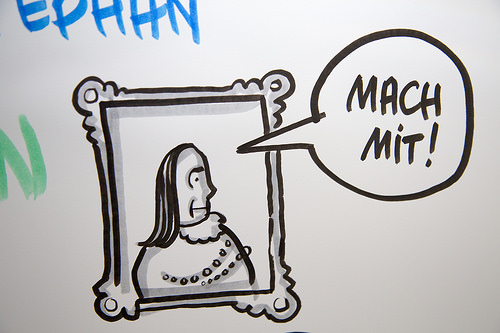 EPHAN
N
MACH
MIT!